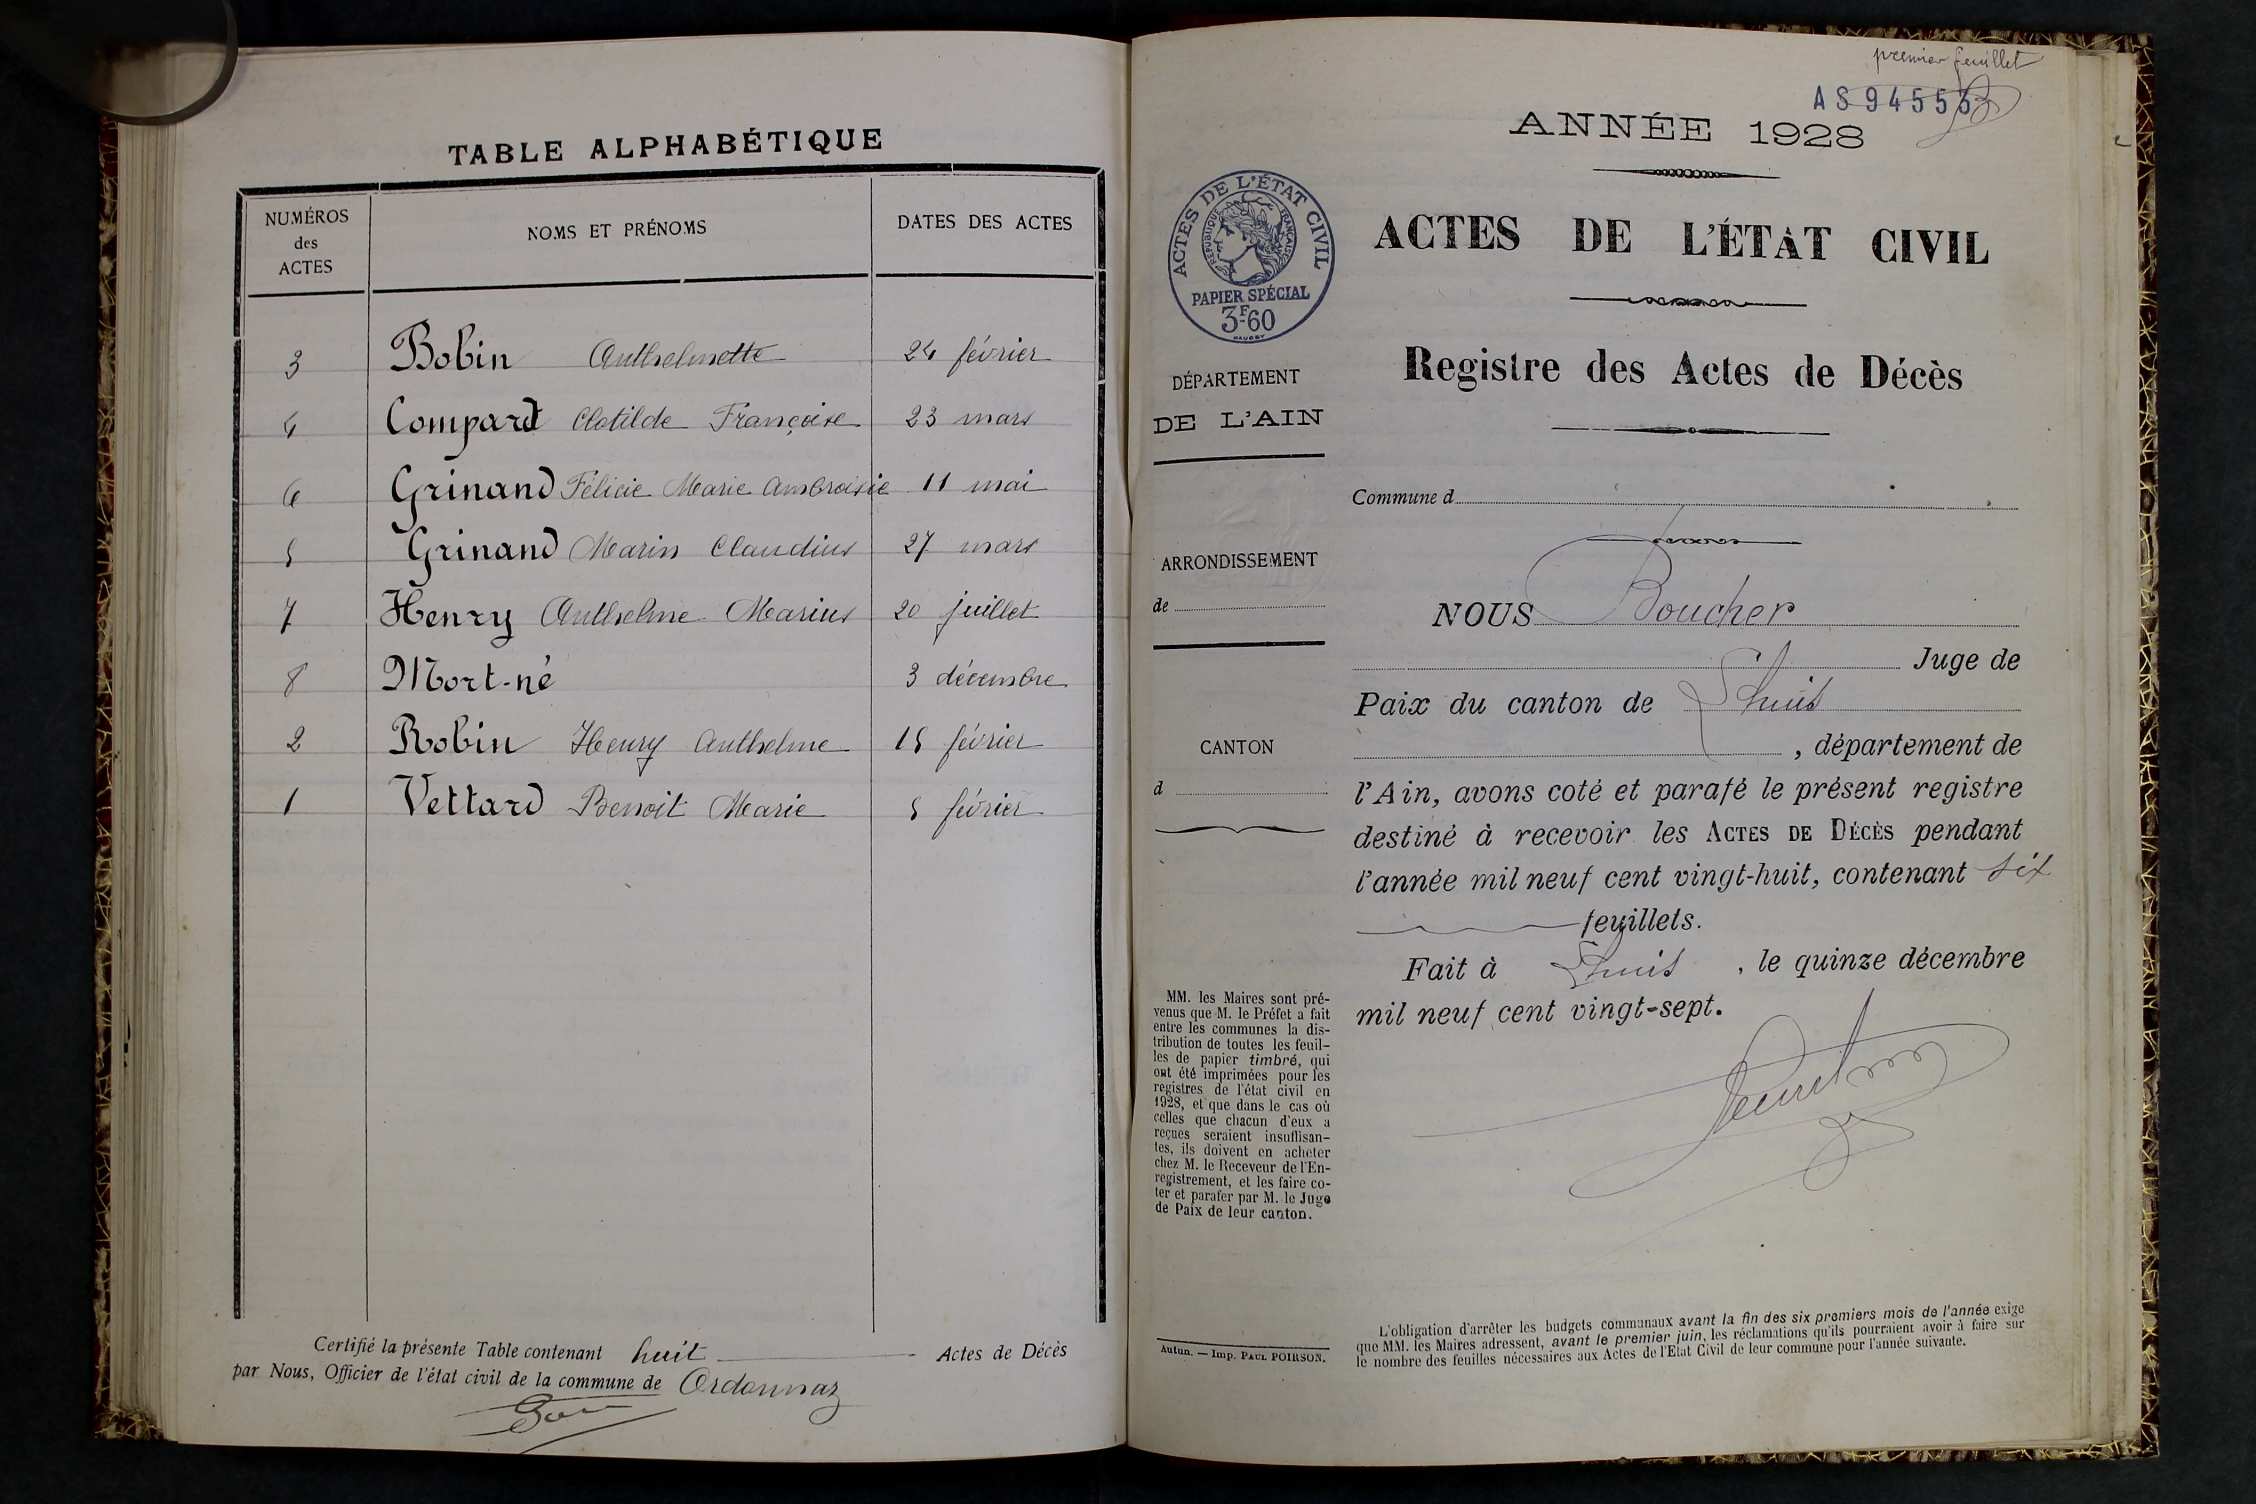 TABLE ALPHABÉTIQUE
NUMÉROS des ACTES NOMS ET PRÉNOMS DATES DES ACTES
3 Bobin Anthelmette 24 février
4 Compard Clotilde Françoise 23 mars
6 Grinand Félicie Marie Ambroisie 11 mai
5 Grinand Marin Claudius 27 mars
7 Henry Anthelme Marius 20 juillet
8 Mort-né 3 décembre
2 Robin Henry Anthelme 15 février
1 Vettard Benoit Marie 5 février
Certifié la présente Table contenant huit Actes de Décès
par Nous, Officier de l'état civil de la commune de Ordonnaz
premier feuillet
AS94553
ANNÉE 1928
ACTES DE L'ÉTAT CIVIL
RÉPUBLIQUE FRANÇAISE
PAPIER SPÉCIAL
3F60
ACTES DE L'ÉTAT CIVIL
Registre des Actes de Décès
DÉPARTEMENT
DE L'AIN
Commune d
ARRONDISSEMENT
de
CANTON
d
NOUS Boucher
Juge de
Paix du canton de Lhuis
, département de
l'Ain, avons coté et parafé le présent registre
destiné à recevoir les ACTES DE DÉCÈS pendant
l'année mil neuf cent vingt-huit, contenant six
feuillets.
Fait à Lhuis, le quinze décembre
mil neuf cent vingt-sept.
MM. les Maires sont pré-
venus que M. le Préfet a fait
entre les communes la dis-
tribution de toutes les feuil-
les de papier timbré, qui
ont été imprimées pour les
registres de l'état civil en
1928, et que dans le cas où
celles que chacun d'eux a
reçues seraient insuffisan-
tes, ils doivent en acheter
chez M. le Receveur de l'En-
registrement, et les faire co-
ter et parafer par M. le Juge
de Paix de leur canton.
Autun. — Imp. PAUL POIRSON.
L'obligation d'arrêter les budgets communaux avant la fin des six premiers mois de l'année exige
que MM. les Maires adressent, avant le premier juin, les réclamations qu'ils pourraient avoir à faire sur
le nombre des feuilles nécessaires aux Actes de l'Etat Civil de leur commune pour l'année suivante.